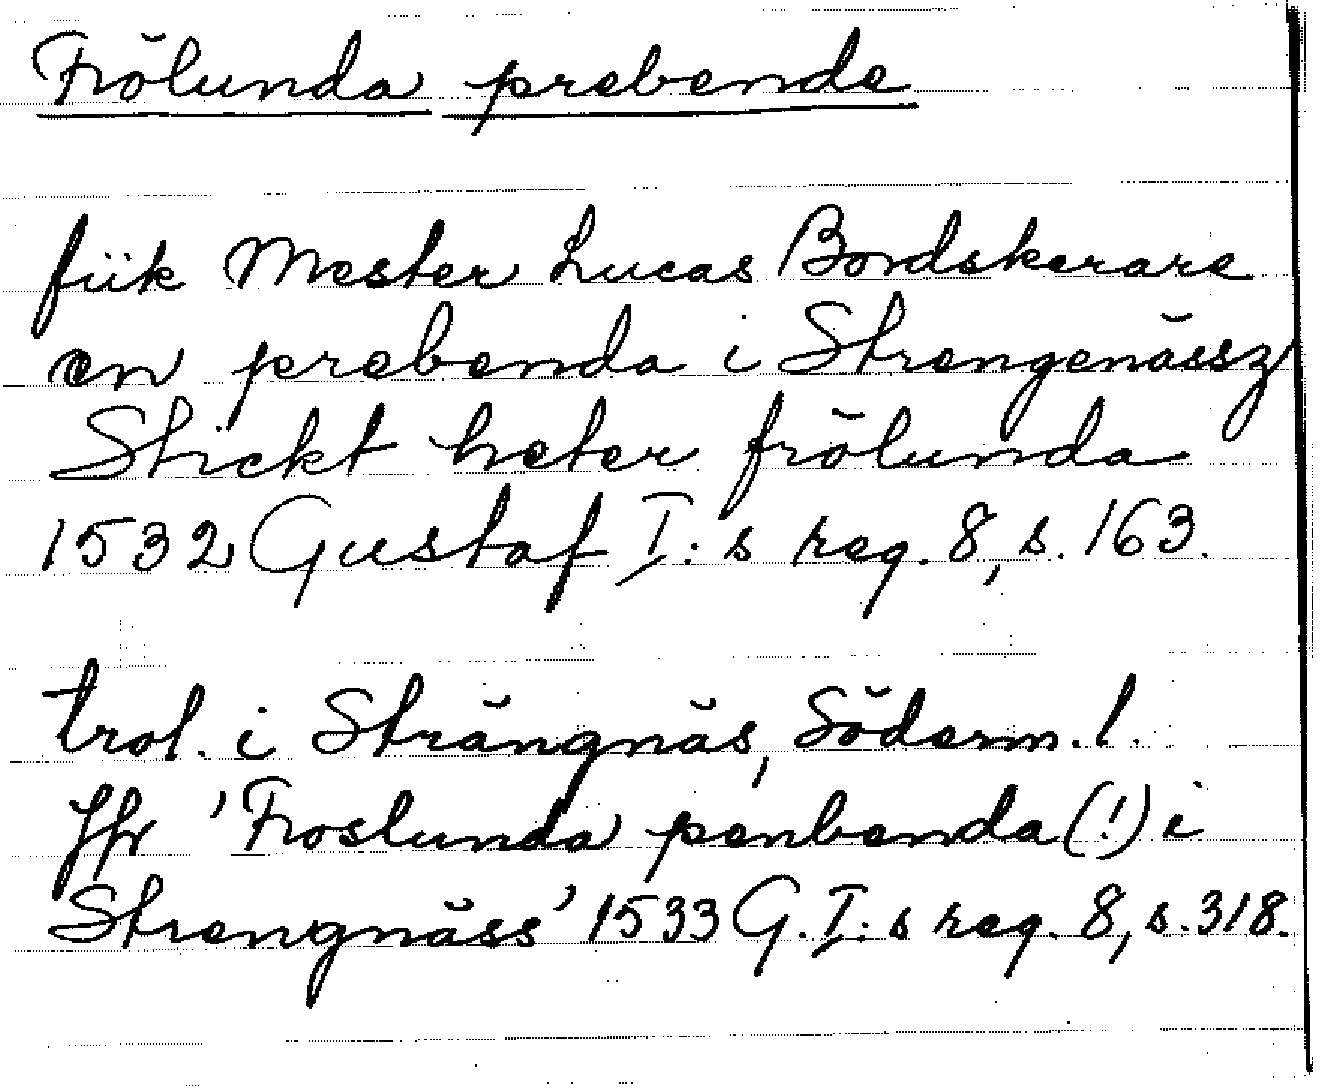 Frölunda prebende
fiik Mester Lucas Bordskerare
en prebenda i Strengenässz
Stickt heter frölunda
1532 Gustaf I:s reg. 8, s. 163.
trol. i Strängnäs, Söderm. l.
Jfr 'Froslunda penbenda (!) i
Strengnäss' 1533 G. I:s reg. 8, s. 318.